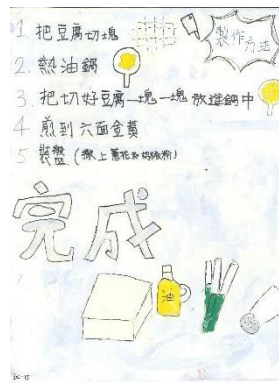 製作方法
1. 把豆腐切塊
2. 熱油鍋
3. 把切好豆腐一塊一塊放進鍋中
4 煎到六面金黃
5 裝盤(撒上蔥花和胡椒粉)
完成
油